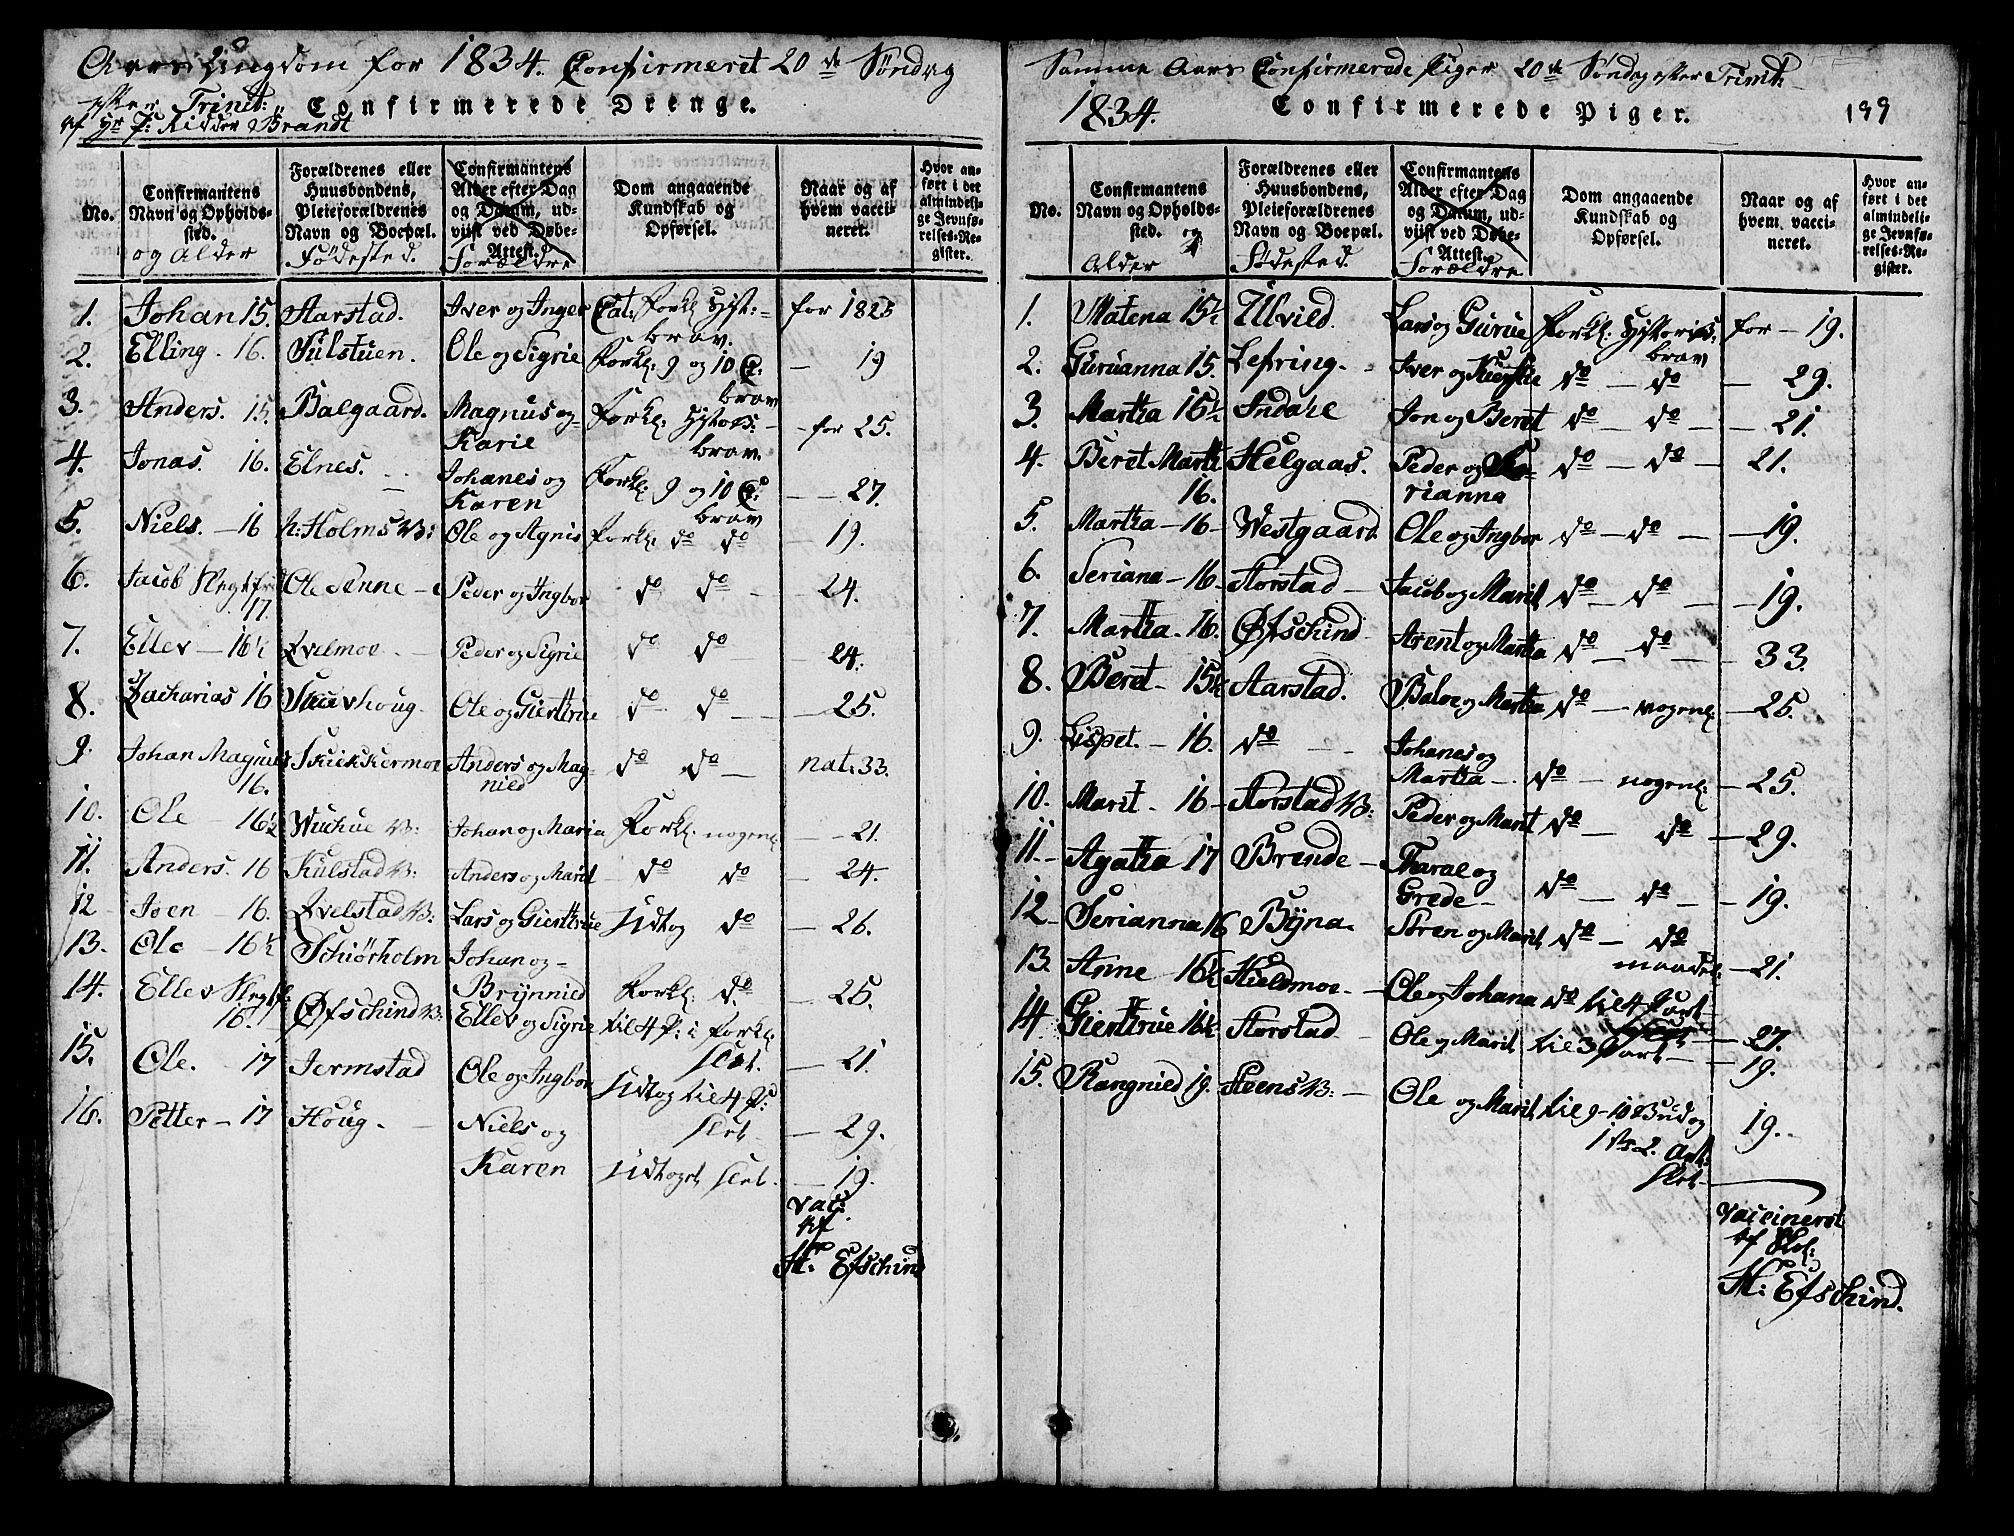 Ungdom for 1834. Confirmeret 20de Søndag
efter Trinit:
af Hr J: Ridder Brandt
Confirmerede Drenge.
No.
Confirmantens Navn og Opholdssted.
og Alder
Forældrenes eller Huusbondens, Pleieforældrenes Navn og Boepæl.
Fødested.
Confirmantens Alder efter Dag og Datum, udviist ved Døbe-Attest.
Forældre
Dom angaaende Kundskab og Opførsel.
Naar og af hvem vaccineret.
Hvor anført i det almindelige Jevnførelses-Register.
1. Johan 15. Aarstad. Iver og Inger Cat: Forkl: Hist: brav. for 1825
2. Elling. 16. Sulstuen. Ole og Sigrie Forkl: 9 og 10 C: brav — 19
3. Anders. 15 Balgaard. Magnus og Karie Forkl: Histor: brav. — for 25.
4. Jonas. 16. Elnes. Johanes og Karen Forkl: 9 og 10 C: brav — 27.
5. Niels. — 16 n: Holms V: Ole og Agnis Forkl: do do — 19.
6. Jacob 17. Ole Peder og Ingbor do do — 24.
7. Ellev — 16½ Qvelmoe. Peder og Sigrie do do — 24.
8. Zacharias 16 Ole og Gierttrue do do — 25.
9. Johan Magnus 16. Anders og Magnied do do — nat. 33.
10. Ole — 16½ Wuchue V: Johan og Maria Forkl: nogenl: — 21.
11. Anders. 16 Kulstad V: Anders og Marit do do — 24.
12 Joen — 16. Qvelstad V: Lars og Gierttrue Udtog do — 26.
13. Ole — 16½ Schiørholm Johan og Brynnied Forkl: do — 25.
14. Ellev 16. Øfschind V: Ellev og Sigrie til 4 P: i Forkl: slet. — 21
15. Ole. — 17 Jermstad Ole og Ingbor Udtog til 4 P: slet — 29.
16. Petter — 17 Houg. — Niels og Karen Udtoget slet. — 19.
vac:
af
St: Efschind
Samme Aars Confirmerede Piger 20de Søndag efter Trinit:
1834. Confirmerede Piger. 199
No.
Confirmantens Navn og Opholdssted. og
Alder
Forældrenes eller Huusbondens, Pleieforældrenes Navn og Boepæl.
Fødested.
Confirmantens Alder efter Dag og Datum, udviist ved Døbe-Attest.
Forældre
Dom angaaende Kundskab og Opførsel.
Naar og af hvem vaccineret.
Hvor anført i det almindelige Jevnførelses-Register.
1. Matena 15½ Ulvild. Lars og Gurue Forkl: Historie: brav for — 19.
2. Guruanna 15. Lefring. Iver og Kierstie do — do — 29.
3. Martha 15½ Indahl Jon og Beret do — do — 21.
4. Beret Marthe 16. Helgaas. Peder og Marianna do — do — 21.
5. Martha — 16 — Westgaard Ole og Ingbor do — do — 19.
6. Seriana — 16 — Storstad — Jacob og Marit do — do — 19.
7. Martha — 16. Øfschind Arent og Martha do — do — 33.
8. Beret — 15½ Aarstad. og Martha do — nogenl: — 25.
9. Lispet. — 16. do — Johanes og Martha — do — nogenl: — 25.
10. Marit — 16 — Storstad V: Peder og Marit do — do — 29.
11. Agatha 17 Brende — Tharal og Grede — do — do — 19.
12. Serianna 16 Byna. og Marit do — do — 21.
13. Anne 16½ Kuldmoe — Ole og Johana do til 4 Part — 27.
14. Gierttrue 16½ Storstad Ole og Marit til 3 Part — 19.
15. Rangnied 19. Steens V: — Ole og Marit til 9–10 Bud og 1 & 2. Art: slet — 19.
Vaccineret
af
St: Efschind.